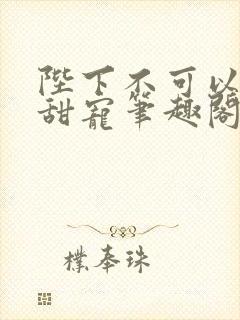 陛下不可以
甜寵筆趣閣
樸奉珠